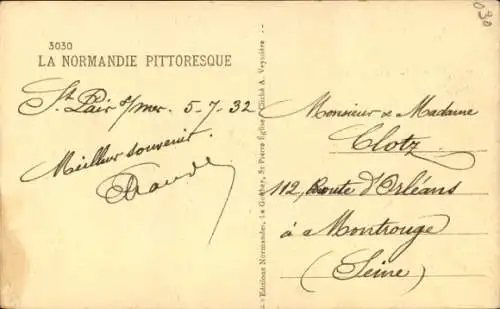 030
3030
LA NORMANDIE PITTORESQUE
St Pair s/mer. 5-7-32
Meilleur souvenir.
Editions Normandes, Le Goubey, St Pierre Eglise - Cliché A. Vaysière
Monsieur & Madame
Clotz
112, Route d'Orléans
à Montrouge
(Seine)